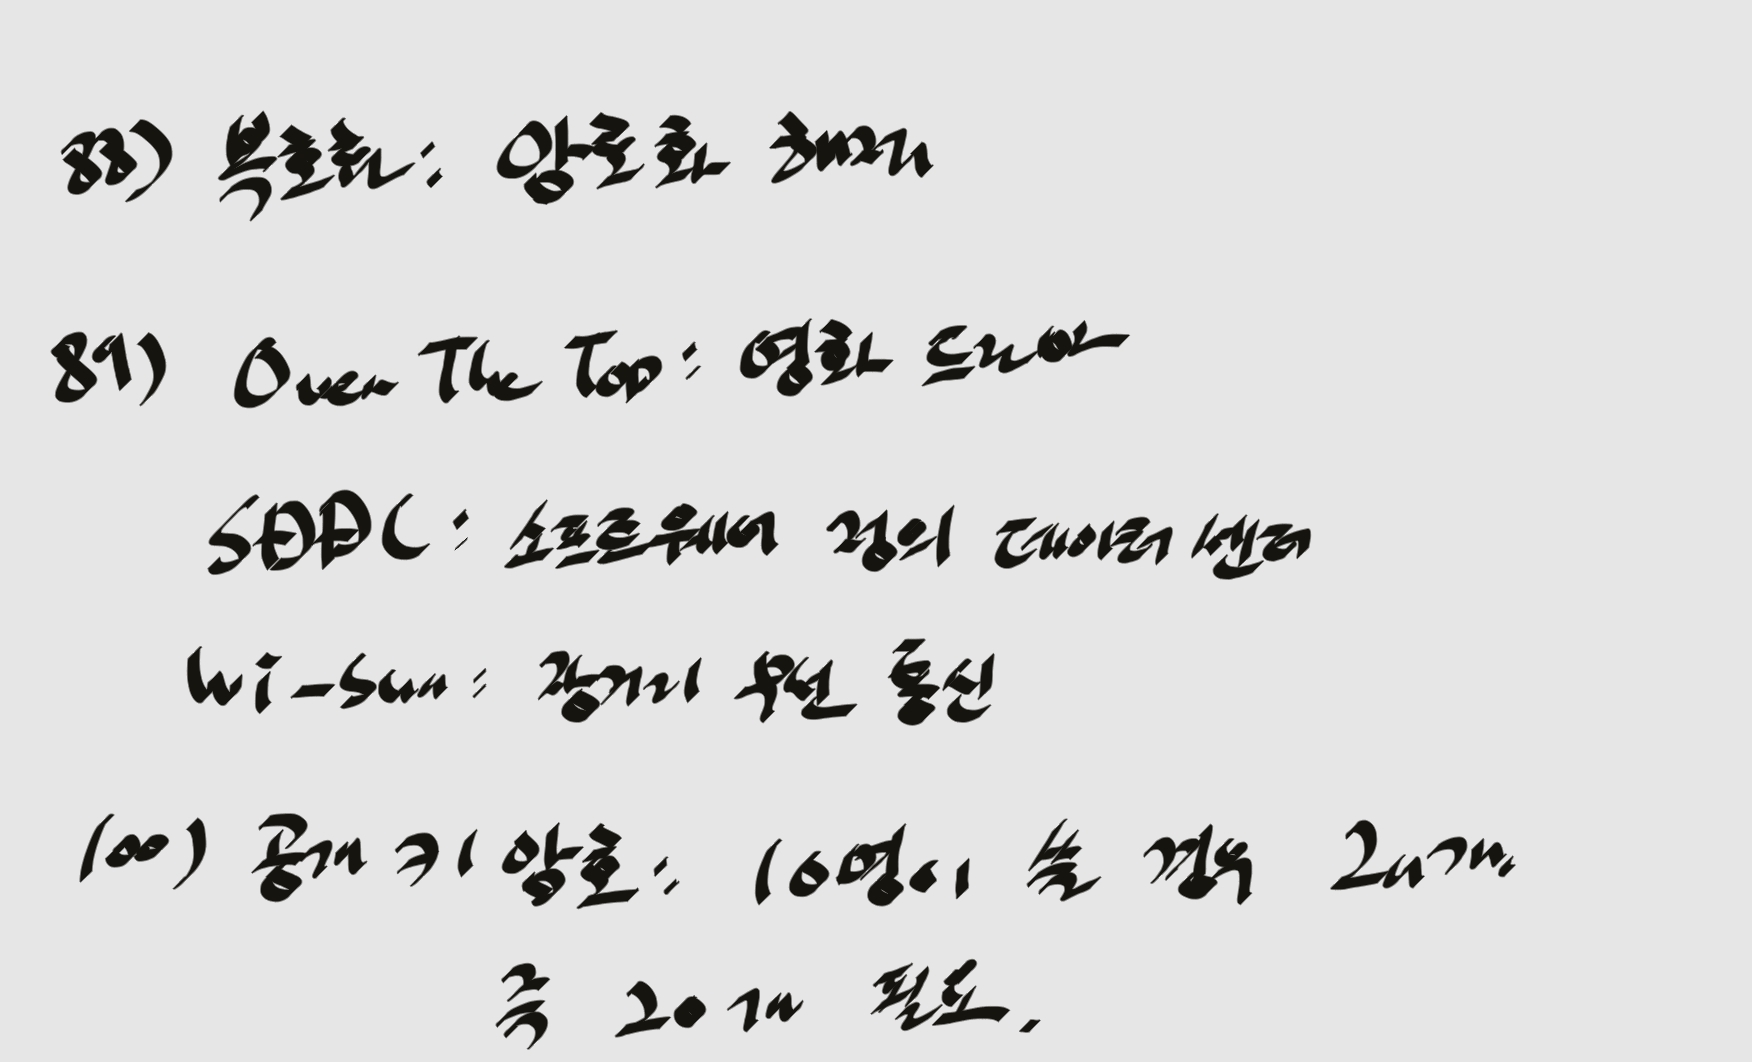 88) 복호화: 암호화 해제
89) Over The Top: 영화 드라마
SDDC: 소프트웨어 정의 데이터 센터
Wi-Sun: 장거리 무선 통신
100) 공개 키 암호: 10명이 쓸 경우 2n개.
즉 20개 필요.